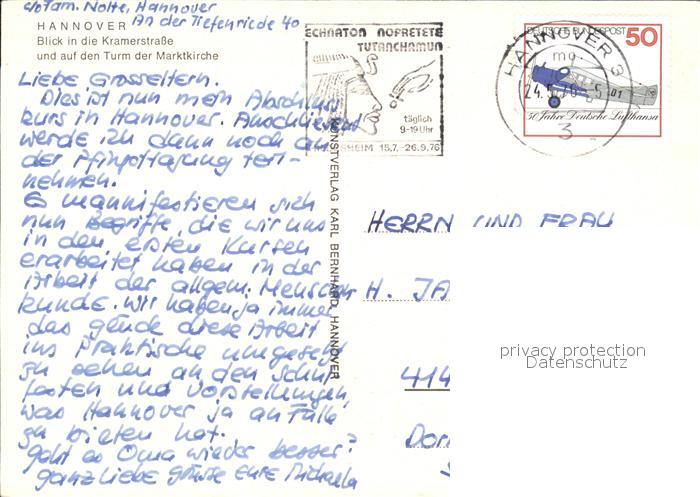 c/o Fam. Nolte, Hannover
An der Tiefenriede 40
HANNOVER
Blick in die Kramerstraße
und auf den Turm der Marktkirche
Liebe Grosseltern.
Dies ist nun mein Abschluss
kurs in Hannover. Anschliessend
werde ich dann noch an
der Pfingsttagung teil-
nehmen.
Es mannifestieren sich
nun Begriffe, die wir uns
in den ersten Kursen
erarbeitet haben in der
Arbeit der allgem. Menschen
kunde. Wir haben ja immer
das glück diese Arbeit
ins Praktische umgesetzt
zu sehen an den Schul
festen und Vorstellungen,
was Hannover ja an Fülle
zu bieten hat.
geht es Oma wieder besser?
ganz liebe grüsse Eure Michaela
KUNSTVERLAG KARL BERNHARD, HANNOVER
ECHNATON NOFRETETE
TUTANCHAMUN
täglich
9-19 Uhr
HILDESHEIM 15.7.-26.9.76
HANNOVER 3
mo
24.5.76
3
DEUTSCHE BUNDESPOST 50
50 Jahre Deutsche Lufthansa
HERRN UND FRAU
H. JA
414
Dor
privacy protection
Datenschutz